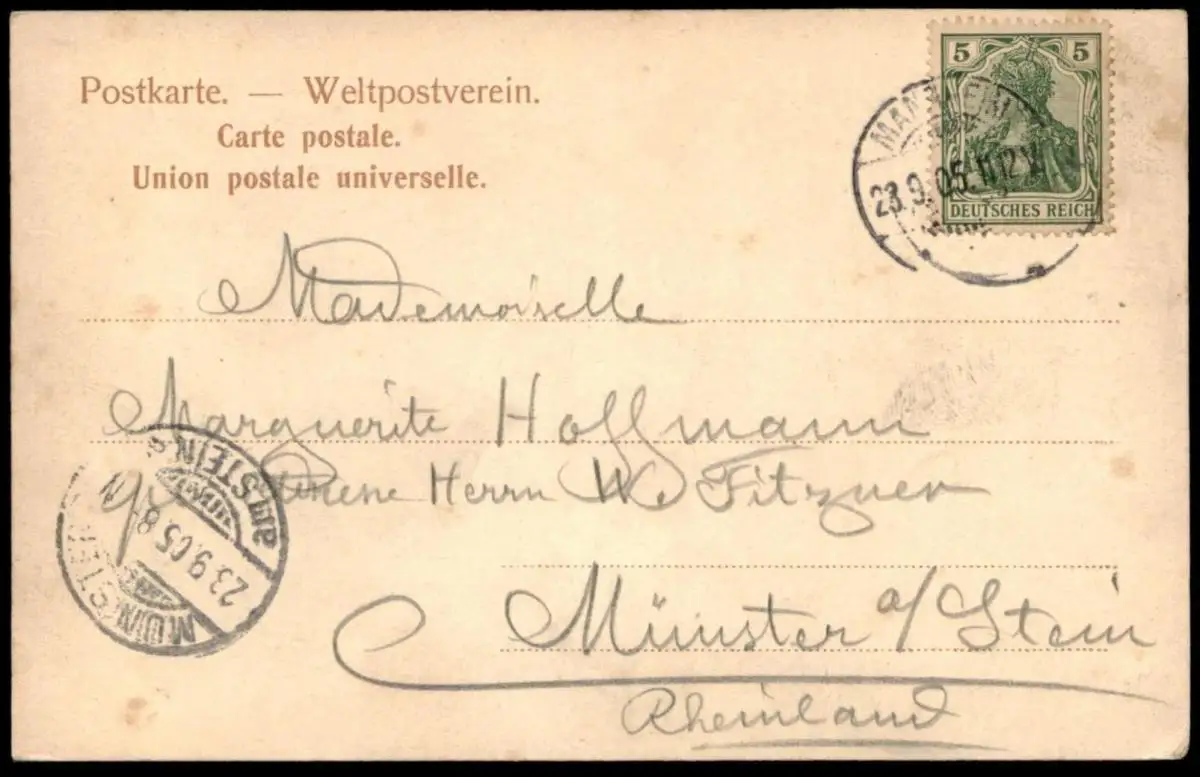 Postkarte. — Weltpostverein.
Carte postale.
Union postale universelle.
5 5
DEUTSCHES REICH
23.9.05.11 12 V
Mademoiselle
Marguerite Hoffmann
Herrn W. Fitzner
Münster a/Stein
Rheinland
MÜNSTER
am STEIN
23.9.05.8